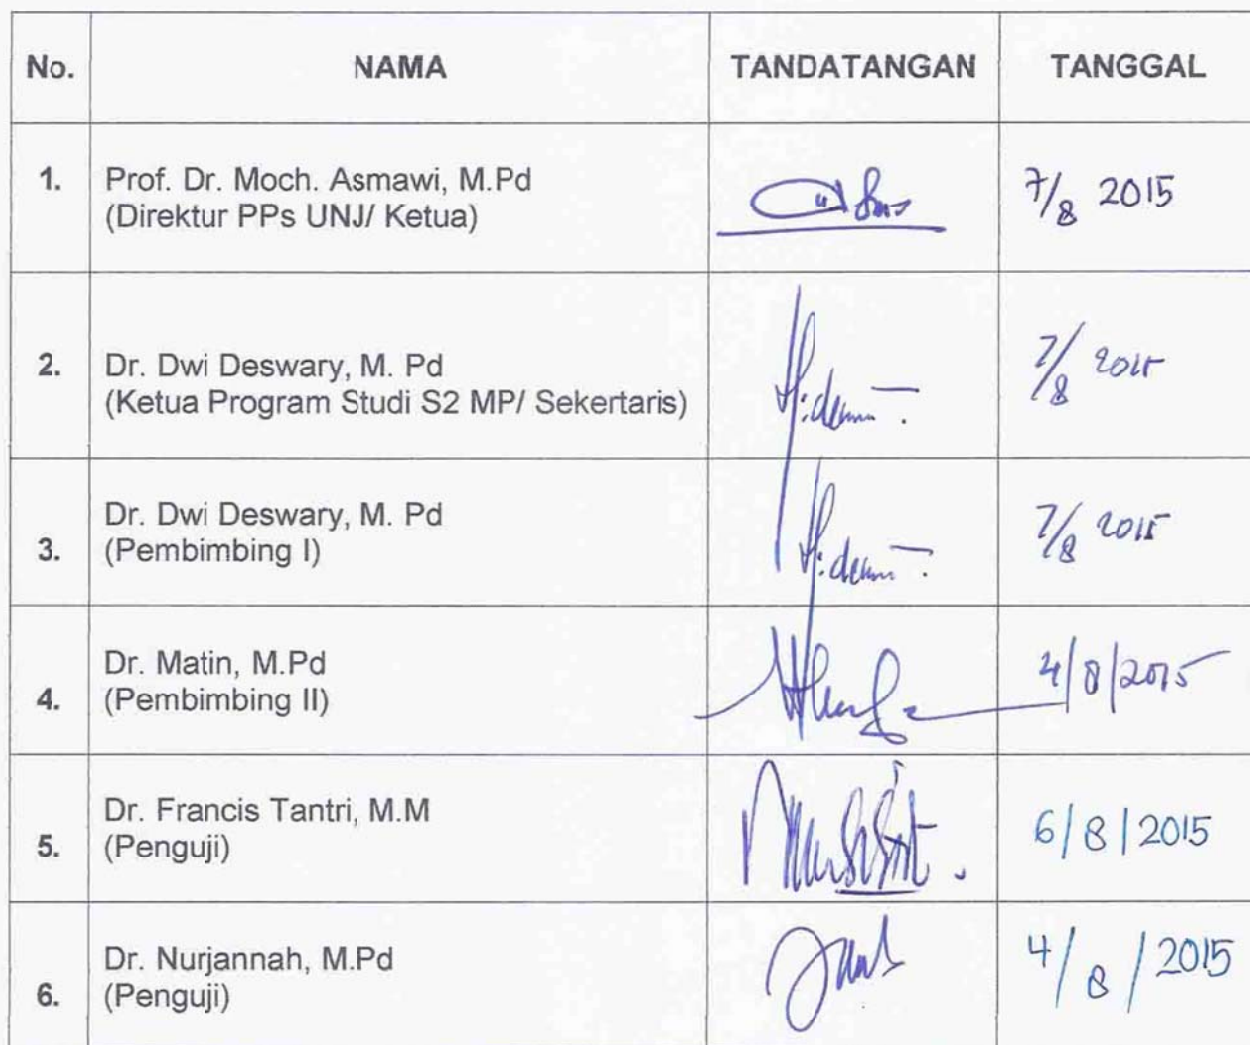 No. NAMA TANDATANGAN TANGGAL
1. Prof. Dr. Moch. Asmawi, M.Pd
(Direktur PPs UNJ/ Ketua)
7/8 2015
2. Dr. Dwi Deswary, M. Pd
(Ketua Program Studi S2 MP/ Sekertaris)
7/8 2015
Dr. Dwi Deswary, M. Pd
3. (Pembimbing I)
7/8 2015
Dr. Matin, M.Pd
4. (Pembimbing II)
4/8/2015
Dr. Francis Tantri, M.M
5. (Penguji)
6/8/2015
Dr. Nurjannah, M.Pd
6. (Penguji)
4/8/2015